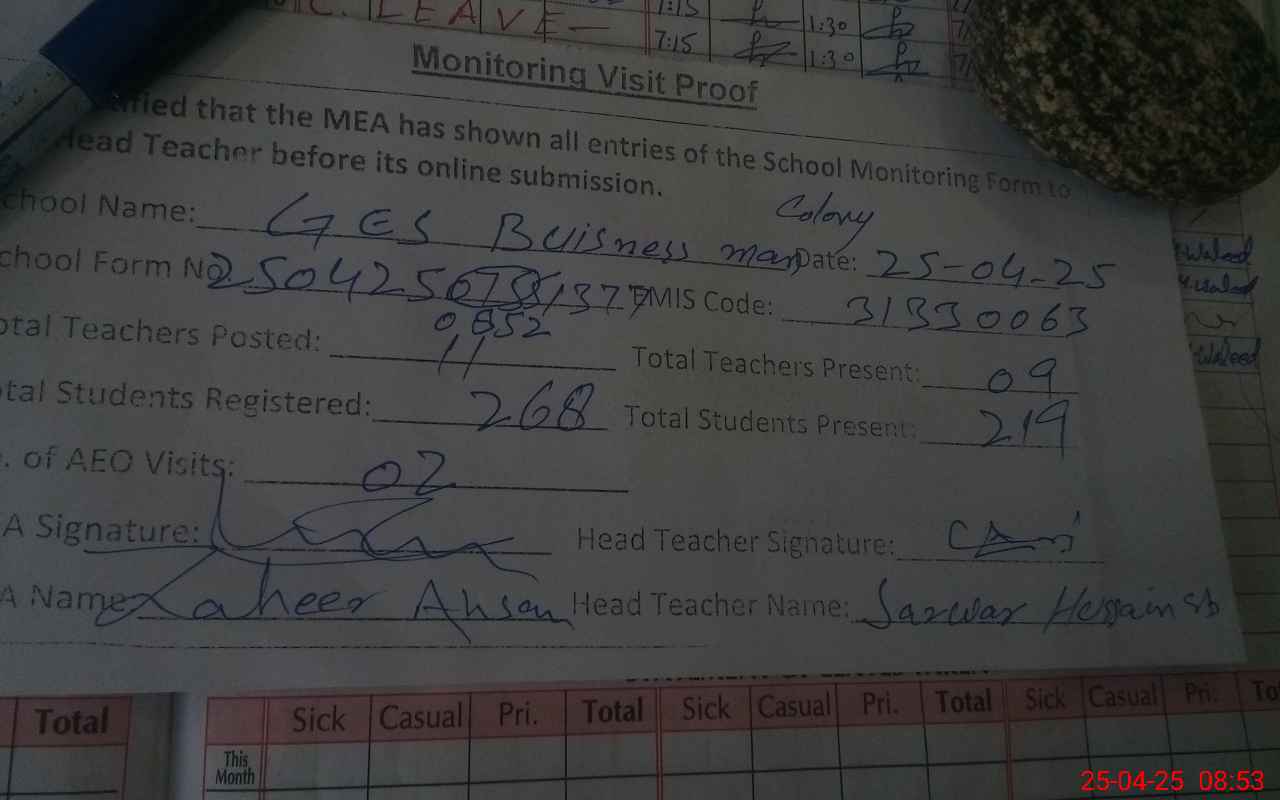 C. LEAVE — 7:15 1:30
7:15 1:30
Monitoring Visit Proof
ified that the MEA has shown all entries of the School Monitoring Form to
Head Teacher before its online submission.
chool Name: GES Buisness man Colony Date: 25-04-25
chool Form No 250425 1377 EMIS Code: 31330063
0852
otal Teachers Posted: 11 Total Teachers Present: 09
otal Students Registered: 268 Total Students Present: 219
. of AEO Visits: 02
A Signature: Head Teacher Signature:
A Name Zaheer Ahsan Head Teacher Name: Sarwar Hussain sb
Waleed
Waleed
Waleed
Total Sick Casual Pri. Total Sick Casual Pri. Total Sick Casual Pri. To
This
Month
25-04-25 08:53